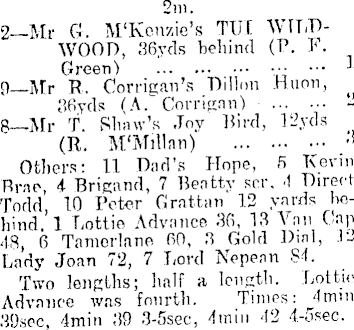 2m.
2—Mr G. M'Kenzie's TUI WILD-
WOOD, 36yds behind (P. F.
Green) ... ... ... ... ... 1
9—Mr R. Corrigan's Dillon Huon,
36yds (A. Corrigan) ... ... 2
8—Mr T. Shaw's Joy Bird, 12yds
(R. M'Millan) ... ... ... 3
Others: 11 Dad's Hope, 5 Kevin
Brae, 4 Brigand, 7 Beatty scr, 4 Direct
Todd, 10 Peter Grattan 12 yards be-
hind, 1 Lottie Advance 36, 13 Van Cap
48, 6 Tamerlane 60, 3 Gold Dial, 12
Lady Joan 72, 7 Lord Nepean 84.
Two lengths; half a length. Lottie
Advance was fourth. Times: 4min
39sec, 4min 39 3-5sec, 4min 42 4-5sec.